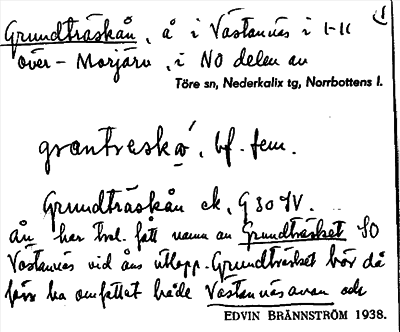 Grundträskån, å i Västannäs i 1-11
över-Morjärv, i NO delen av
Töre sn, Nederkalix tg, Norrbottens l.
bf. fem.
Grundträskån ek. G 30 IV.
ån har trol. fått namn av Grundträsket SO
Västannäs vid åns utlopp. Grundträsket bör då
förr ha omfattat både Västannäsavan och
EDVIN BRÄNNSTRÖM 1938.